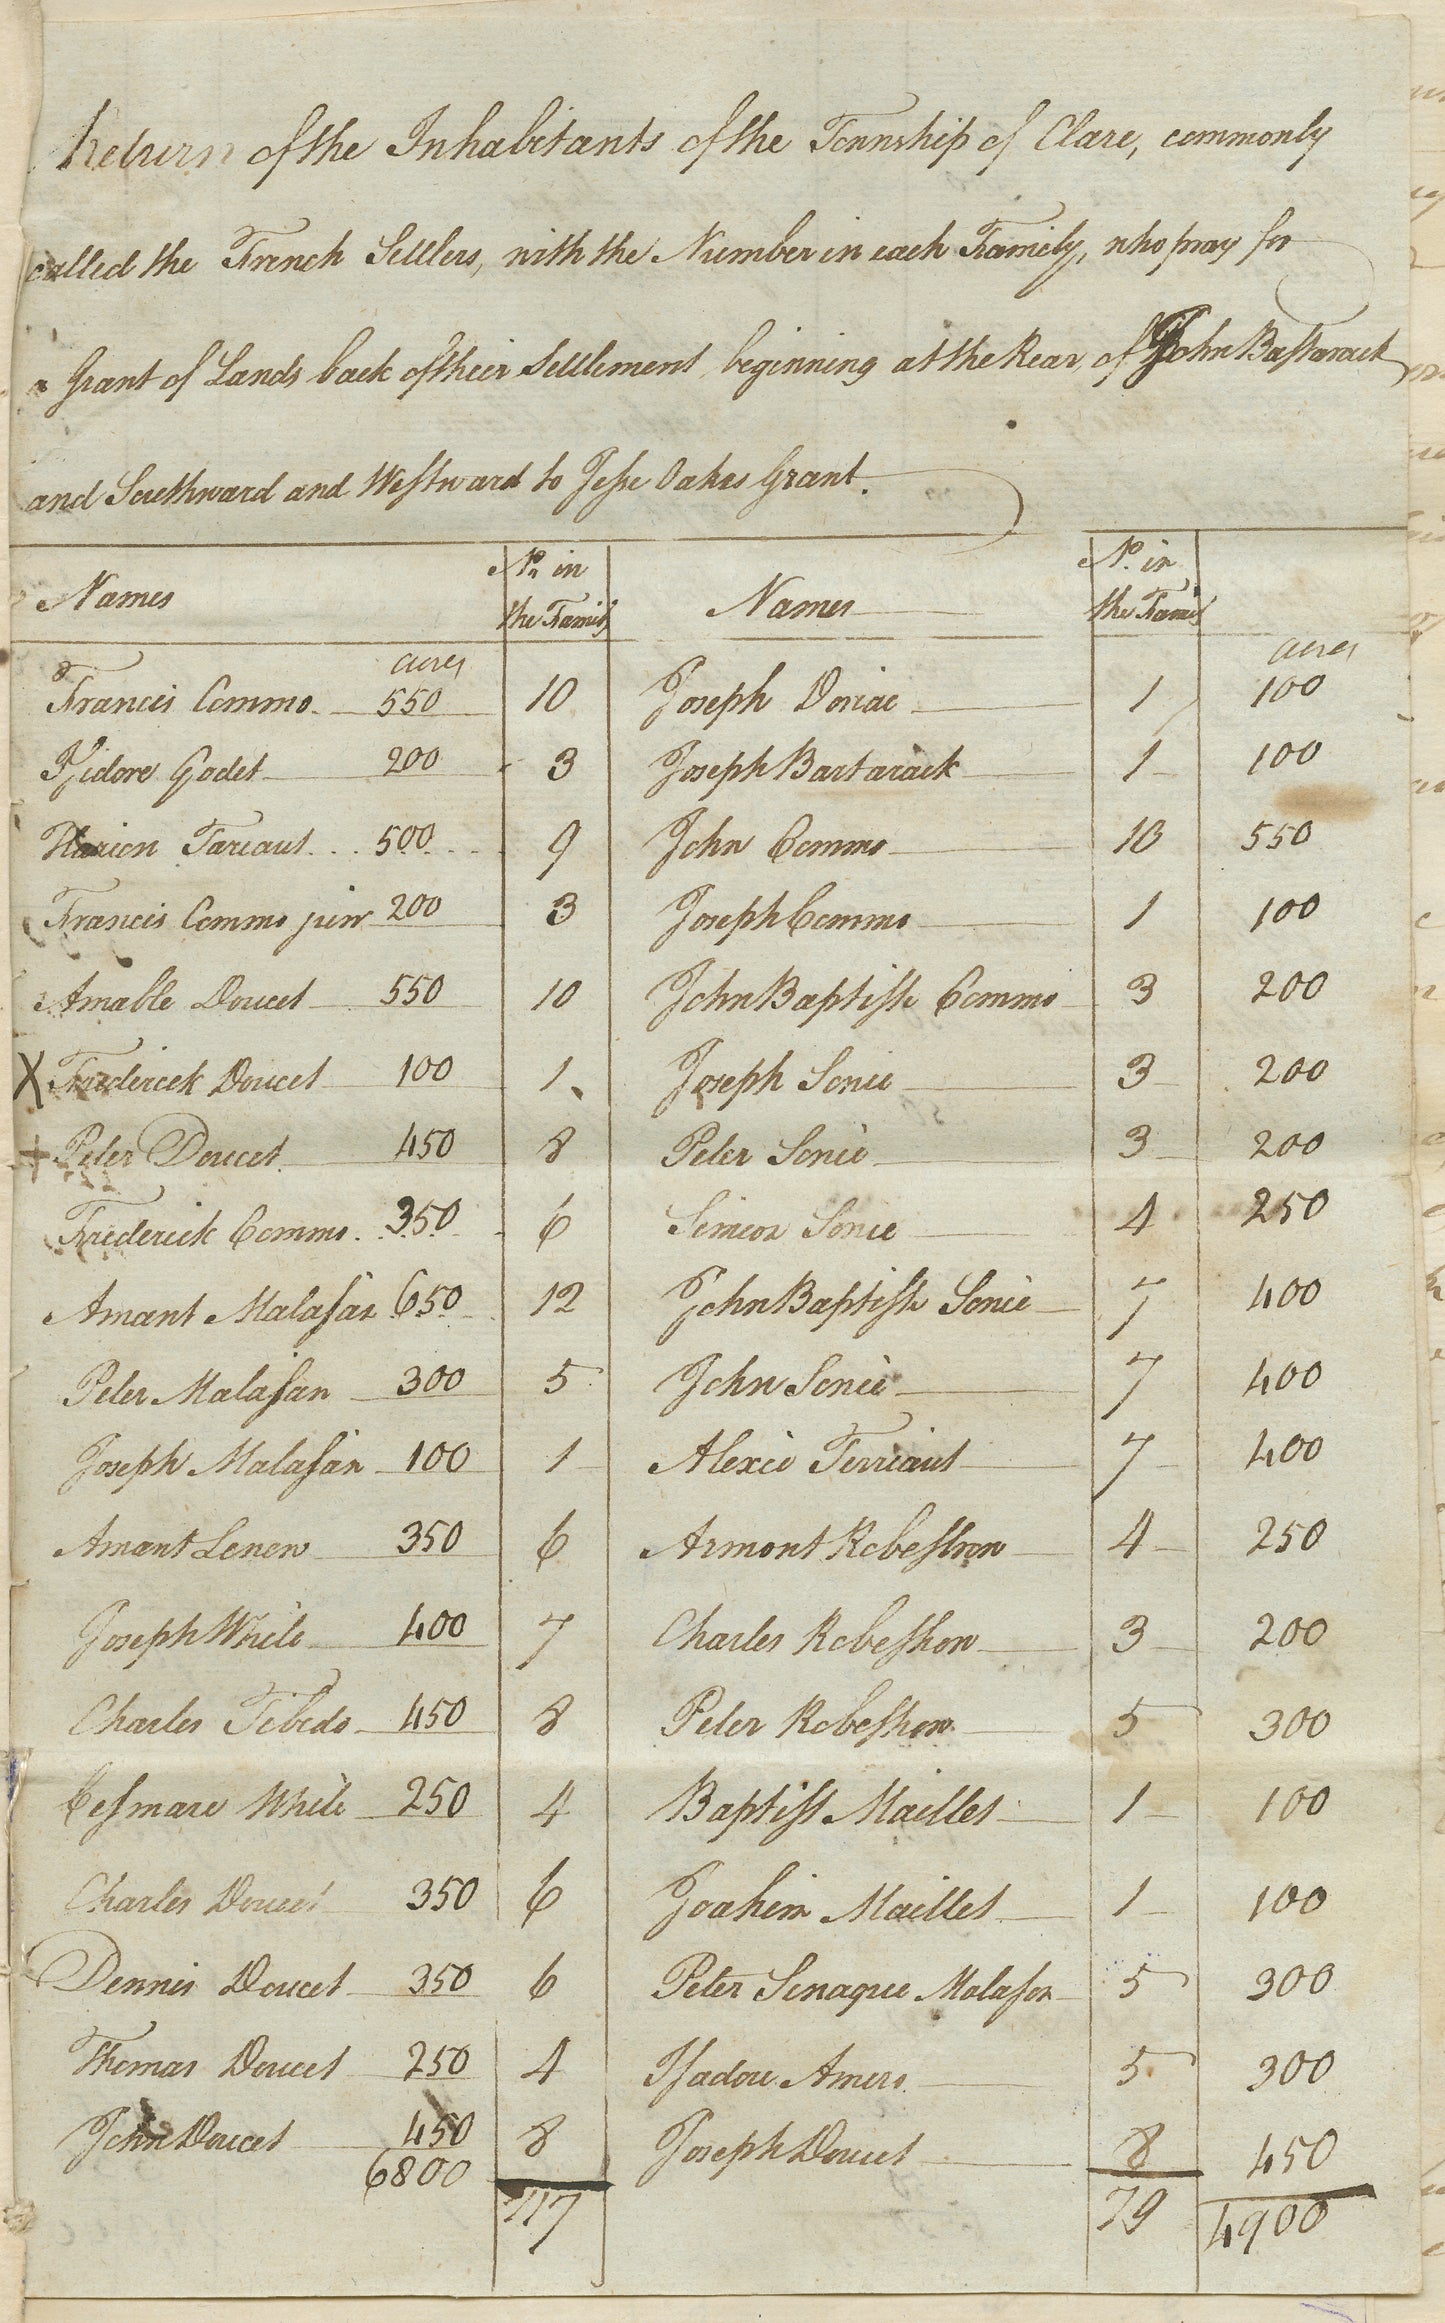 Return of the Inhabitants of the Township of Clare, commonly
called the French Settlers, with the Number in each Family, who pray for
a Grant of Lands back of their Settlement beginning at the Rear of John Bastarack
and Southward and Westward to Jesse Oakes Grant.
Names No. in the Family Names No. in the Family
acres acres
Francis Commo 550 10 Joseph Doriae 1 100
Isidore Godet 200 3 Joseph Bartarack 1 100
Hlarion Tariaut 500 9 John Commo 10 550
Francis Commo junr 200 3 Joseph Commo 1 100
Amable Doucet 550 10 John Baptiste Commo 3 200
X Frederick Doucet 100 1 Joseph Sonie 3 200
+ Peter Doucet 450 8 Peter Sonie 3 200
Frederick Commo 350 6 Simeon Sonie 4 250
Amant Malasan 650 12 John Baptiste Sonie 7 400
Peter Malasan 300 5 John Sonie 7 400
Joseph Malasan 100 1 Alexie Terriaut 7 400
Amant Lenew 350 6 Armont Robeshon 4 250
Joseph White 400 7 Charles Robeshon 3 200
Charles Tibedo 450 8 Peter Robeshon 5 300
Cesmare White 250 4 Baptist Maillet 1 100
Charles Doucet 350 6 Joahim Maillet 1 100
Dennis Doucet 350 6 Peter Senaque Malason 5 300
Thomas Doucet 250 4 Isadore Amero 5 300
John Doucet 450 8 Joseph Doucet 8 450
6800 117 79 4900